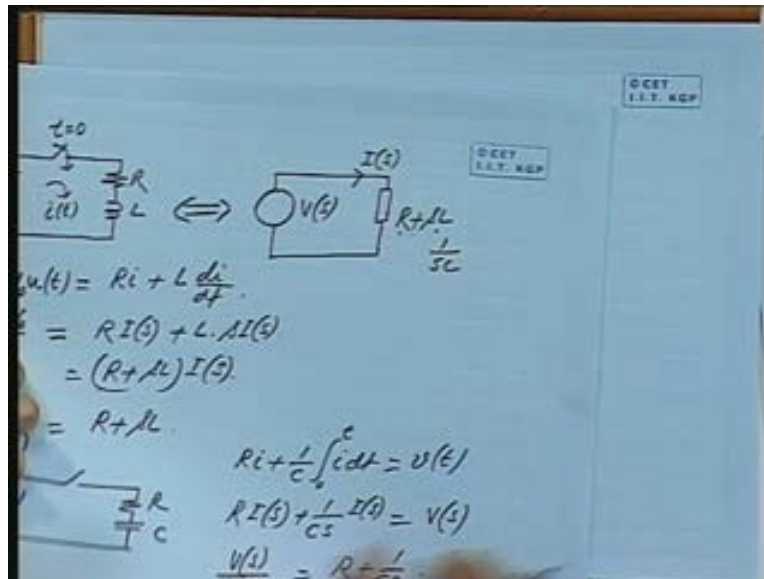 © CET
I.I.T. KGP
© CET
I.I.T. KGP
t=0
i(t)
R
L
⟺
V(s)
I(s)
R+sL
1/sC
u(t) = Ri + L di/dt.
= RI(s) + L.sI(s)
= (R+sL)I(s).
= R+sL.
R
C
Ri + 1/C ∫₀ᵗ i dt = v(t)
RI(s) + 1/Cs I(s) = V(s)
V(s) = R + 1/